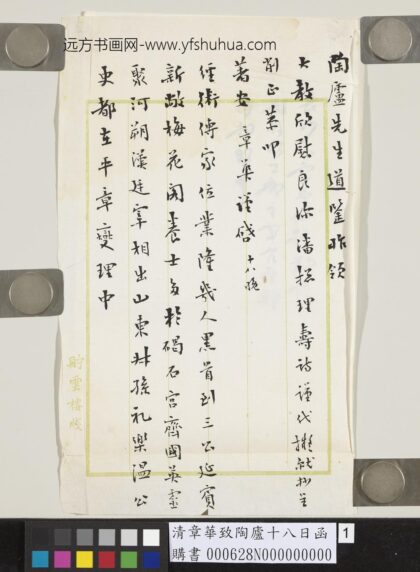 远方书画网-www.yfshuhua.com
陶廬先生道鑒昨領
大教欣慰良深潘總理壽詩謹代擬就抄呈
削正菉叩
著安 章華謹啓 十八晚
經術傳家位業隆幾人黑首到三公延賓
新啟梅花閣養士多於碣石宮齊國英靈
聚河朔漢廷宰相出山東叔孫禮樂溫公
史都在平章燮理中
雲樓牋
清章華致陶廬十八日函
購書 000628N000000000
1